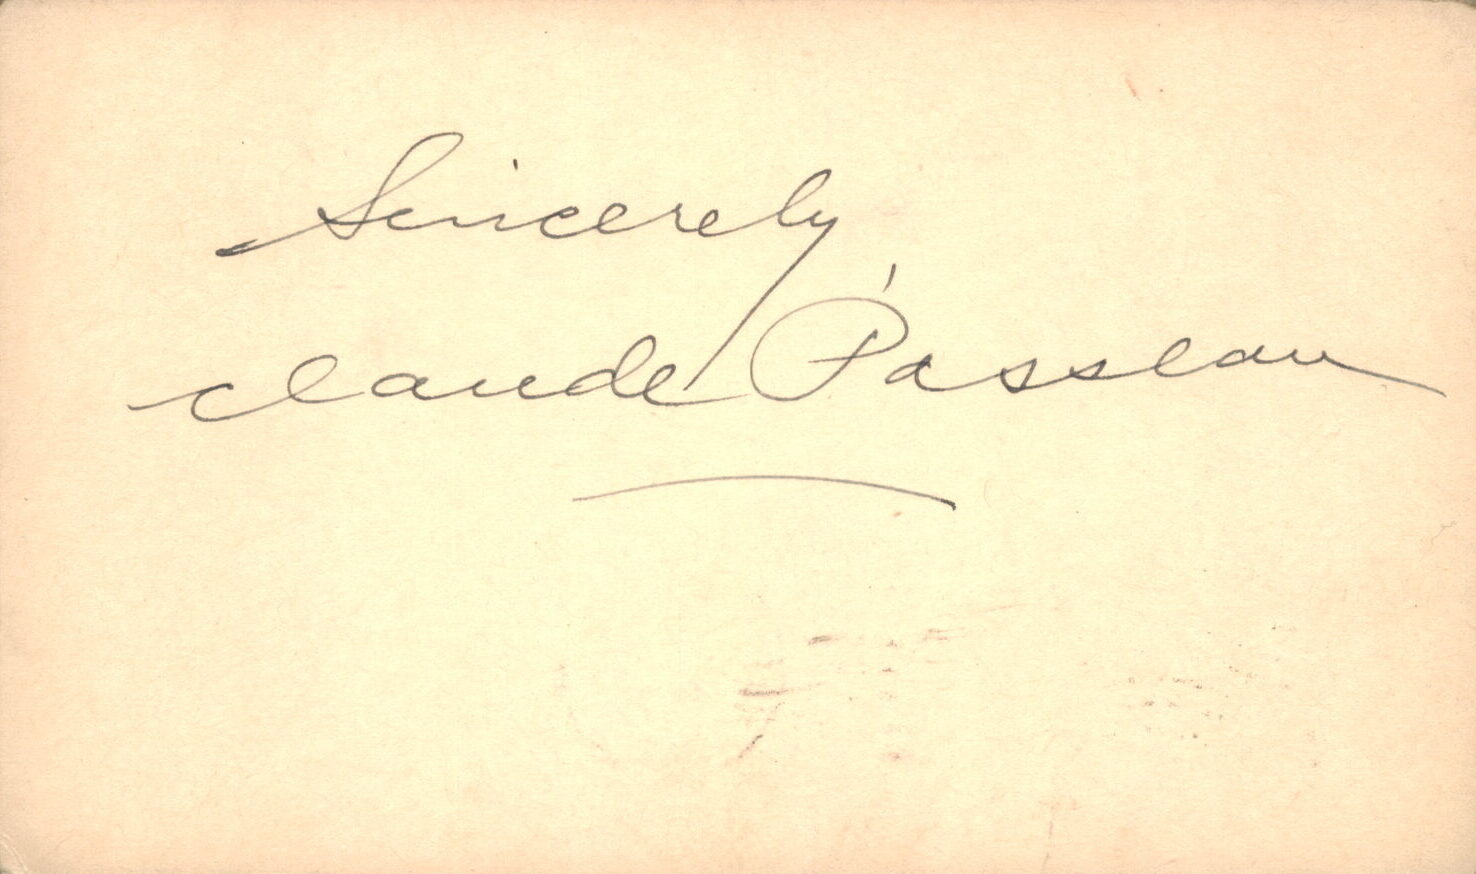 Sincerely
Claude Passeau